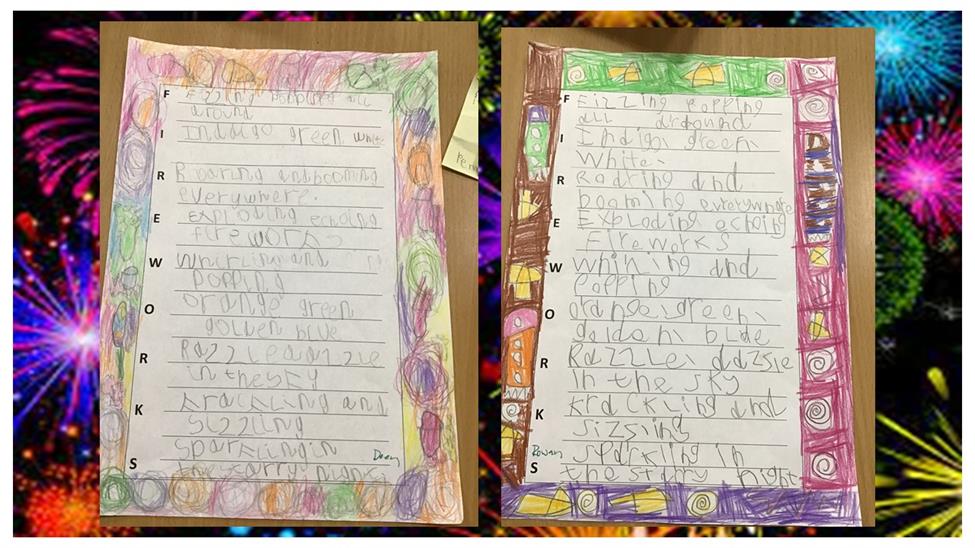 F
Fizzing popping all
around
I
Indaigo green white
R
Roaring and booming
everywhere.
E
Exploding echoing
fireworks
W
Whirling and
popping
O
orange green
golden blue
R
Razzle dazzle
in the sky
K
krackling and
sizzling
S
sparkling in
the starry night
F
Fizzing popping
all around
I
Indigo green
White.
R
Roaring and
booming everywhere
E
Exploding echoing
Fireworks
W
whining and
Popping
O
orange, green,
golden, blue
R
Razzle, dazsle
in the sky
K
krackling and
sizsling
Rowan
S
sparkling in
the starry night